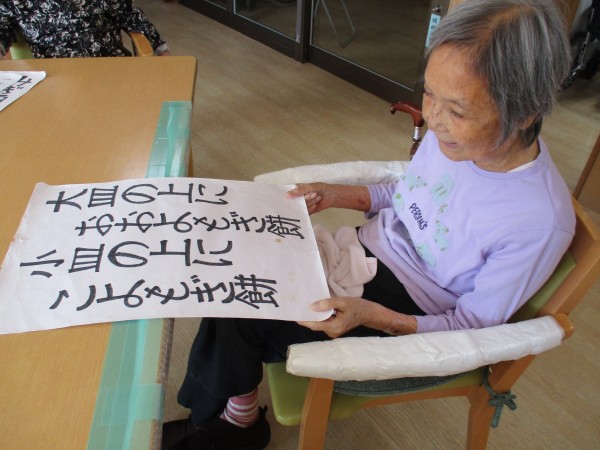 大皿の上に
おおよもぎ餅
小皿の上に
こよもぎ餅
PERSON'S